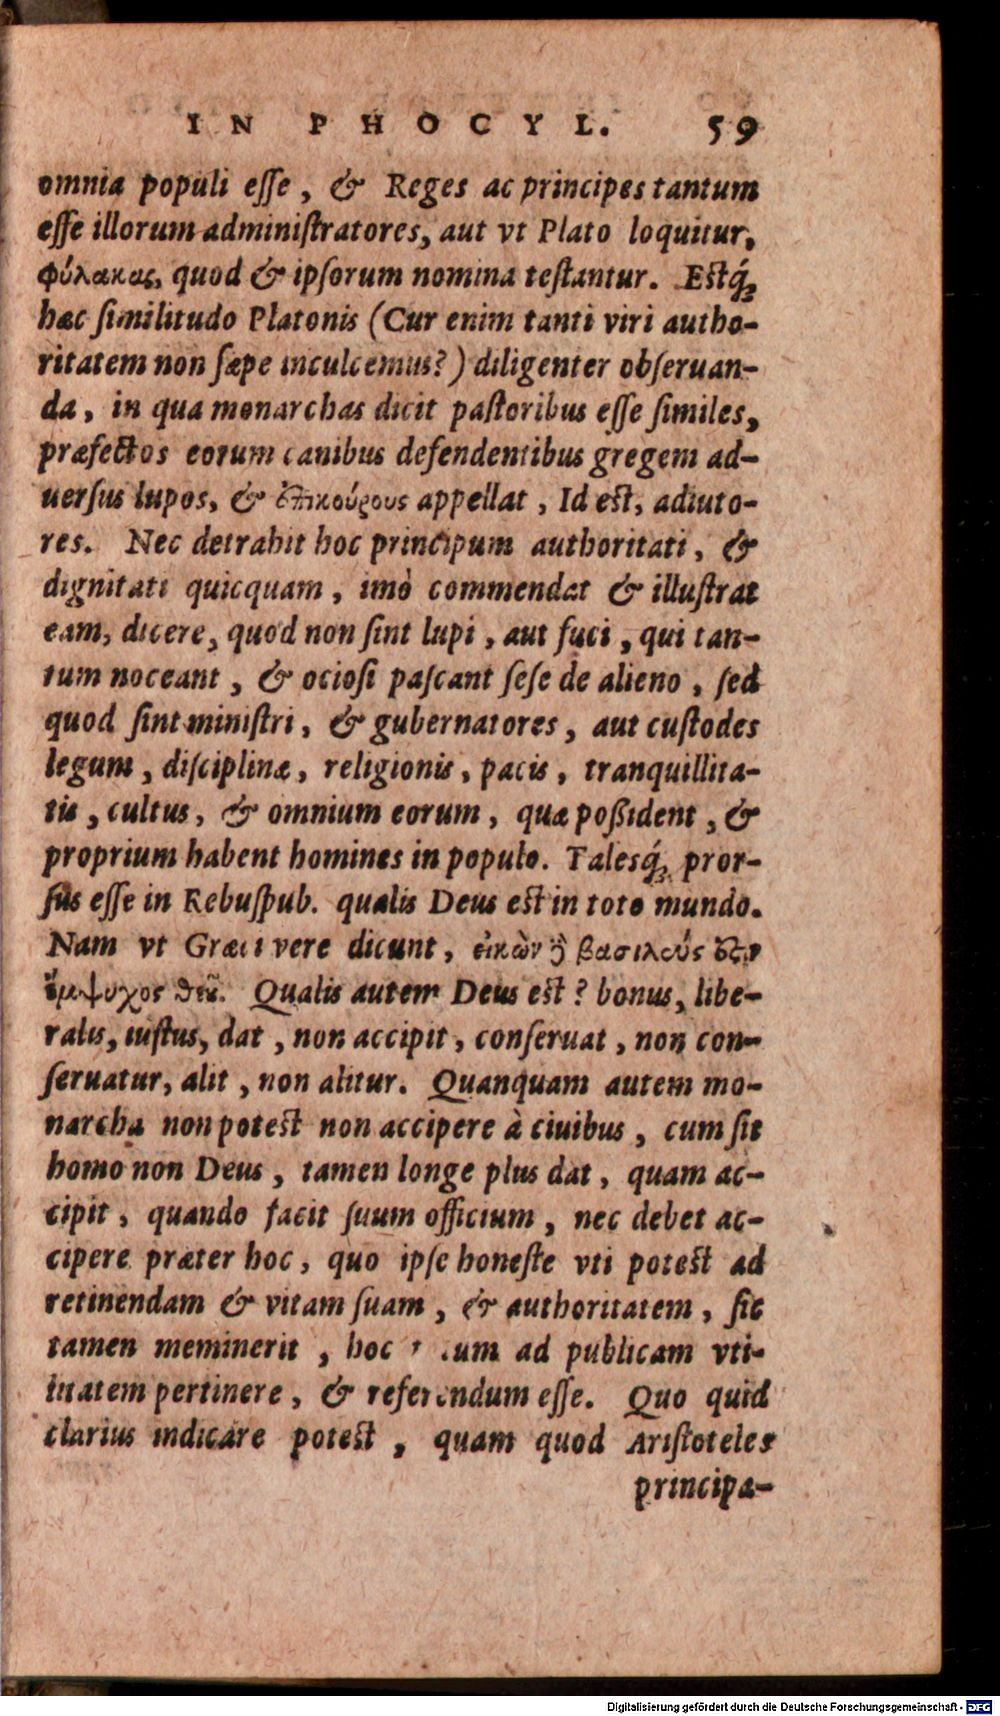 IN PHOCYL. 59
omnia populi eſſe, & Reges ac principes tantum
eſſe illorum adminiſtratores, aut vt Plato loquitur,
φύλακας, quod & ipſorum nomina teſtantur. Eſtq́;
hæc ſimilitudo Platonis (Cur enim tanti viri autho-
ritatem non ſæpe inculcemus?) diligenter obſeruan-
da, in qua monarchas dicit paſtoribus eſſe ſimiles,
præfectos eorum canibus defendentibus gregem ad-
uerſus lupos, & ἐπικούρους appellat, Id eſt, adiuto-
res. Nec detrahit hoc principum authoritati, &
dignitati quicquam, imò commendat & illuſtrat
eam, dicere, quod non ſint lupi, aut fuci, qui tan-
tum noceant, & ocioſi paſcant ſeſe de alieno, ſed
quod ſint miniſtri, & gubernatores, aut cuſtodes
legum, diſciplinæ, religionis, pacis, tranquillita-
tis, cultus, & omnium eorum, quæ poßident, &
proprium habent homines in populo. Talesq́; pror-
ſus eſſe in Rebuſpub. qualis Deus eſt in toto mundo.
Nam vt Græci vere dicunt, εἰκὼν ὁ βασιλεύς ἐστιν
ἔμψυχος θεοῦ. Qualis autem Deus eſt? bonus, libe-
ralis, iuſtus, dat, non accipit, conſeruat, non con-
ſeruatur, alit, non alitur. Quanquam autem mo-
narcha non poteſt non accipere à ciuibus, cum ſit
homo non Deus, tamen longe plus dat, quam ac-
cipit, quando facit ſuum officium, nec debet ac-
cipere præter hoc, quo ipſe honeſte vti poteſt ad
retinendam & vitam ſuam, & authoritatem, ſic
tamen meminerit, hoc ad publicam vti-
litatem pertinere, & referendum eſſe. Quo quid
clarius indicare poteſt, quam quod Ariſtoteles
principa-
Digitalisierung gefördert durch die Deutsche Forschungsgemeinschaft - DFG